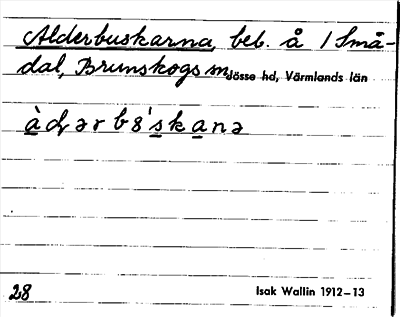 Alderbuskarna, beb. å 1 Små-
dal, Brunskogs sn, Jösse hd, Värmlands län
28
Isak Wallin 1912–13